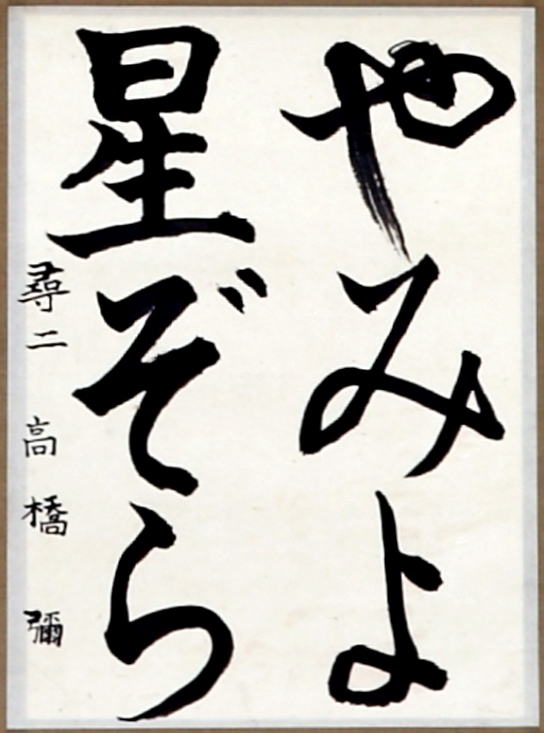 やみよ
星ぞら
尋二 高橋彌